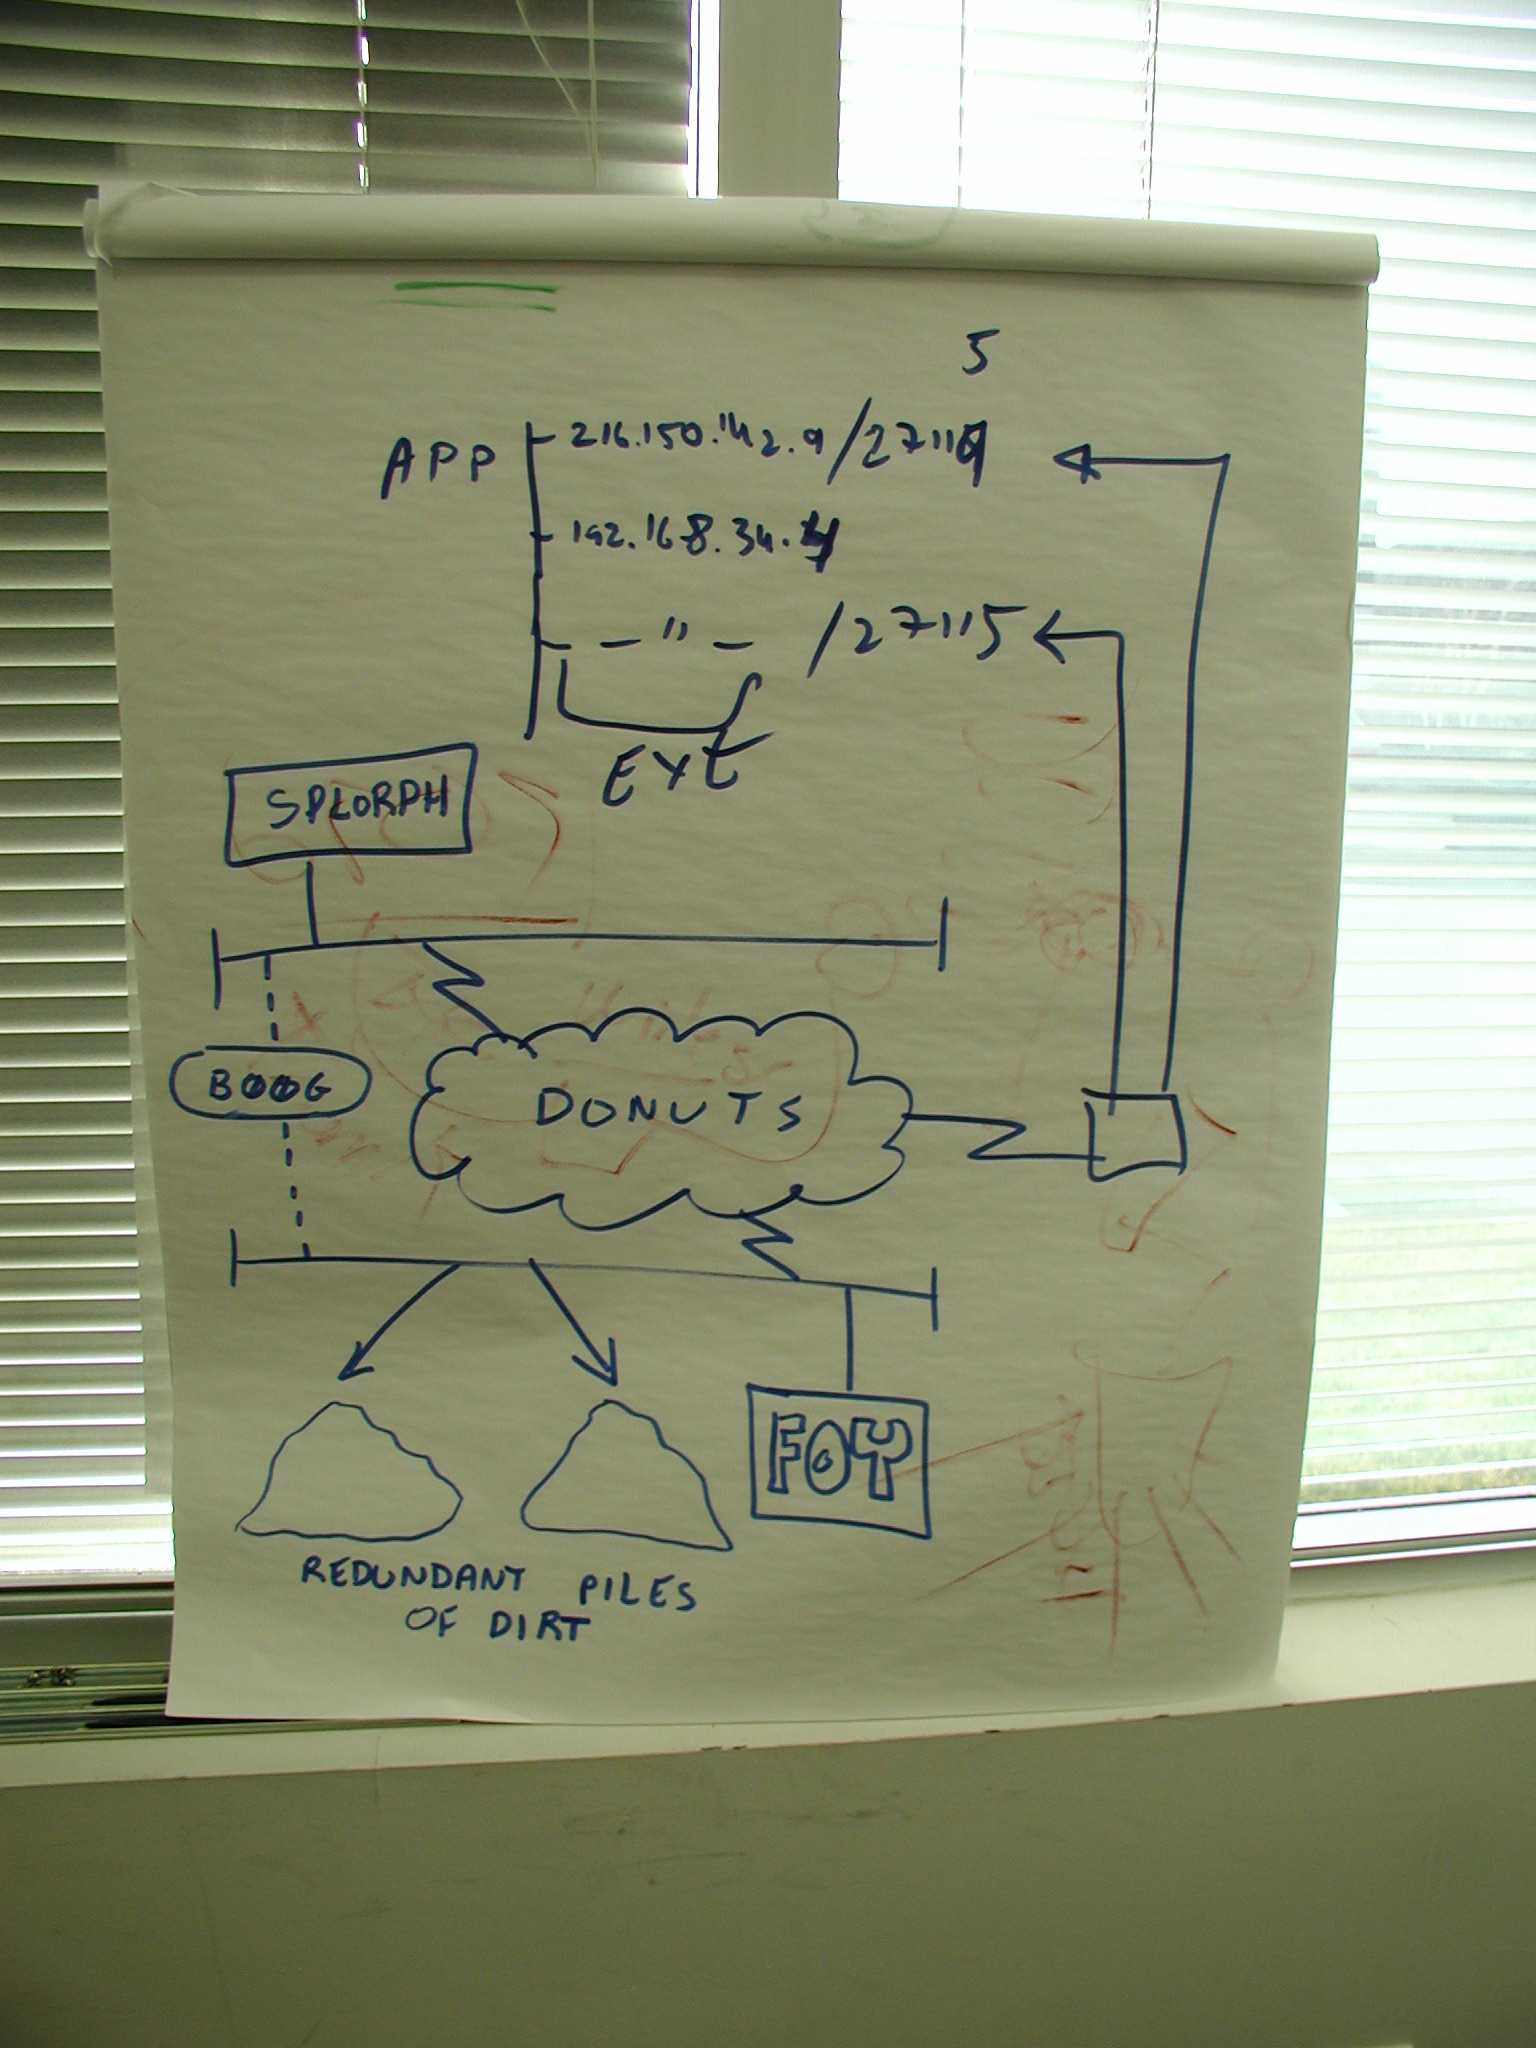 5
APP
216.150.142.9/27115
192.168.34.4
— " — /27115
EXE
SPLORPH
BOOG
DONUTS
FOY
REDUNDANT PILES
OF DIRT